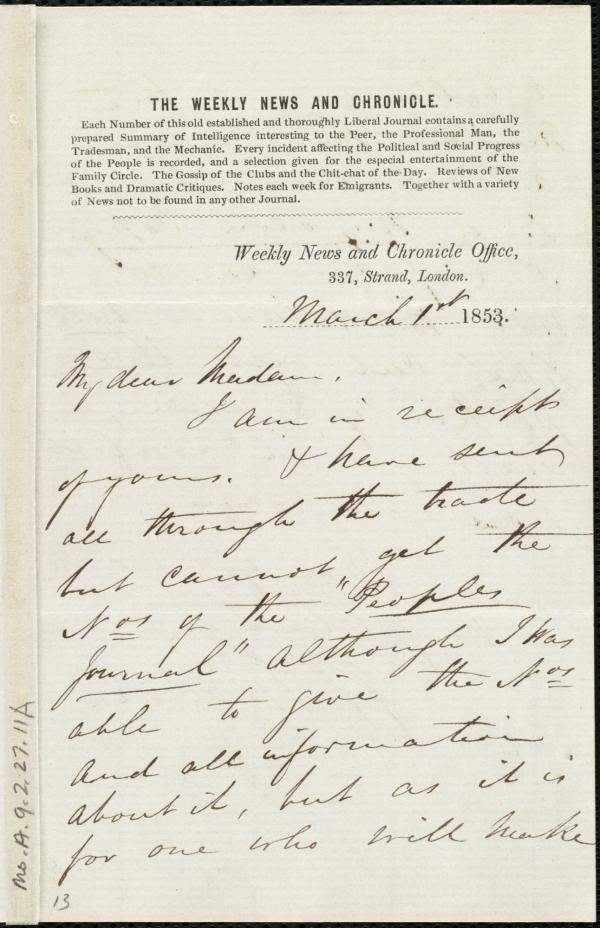 THE WEEKLY NEWS AND CHRONICLE.
Each Number of this old established and thoroughly Liberal Journal contains a carefully
prepared Summary of Intelligence interesting to the Peer, the Professional Man, the
Tradesman, and the Mechanic. Every incident affecting the Political and Social Progress
of the People is recorded, and a selection given for the especial entertainment of the
Family Circle. The Gossip of the Clubs and the Chit-chat of the Day. Reviews of New
Books and Dramatic Critiques. Notes each week for Emigrants. Together with a variety
of News not to be found in any other Journal.
Weekly News and Chronicle Office,
337, Strand, London.
March 1st 1853.
My dear Madam,
I am in receipt
of yours. & have sent
all through the trade
but cannot get the
Nos of the "Peoples
Journal" although I was
able to give the Nos
and all information
about it, but as it is
for one who will make
Ms. A. 9. 2. 27. 11A
13